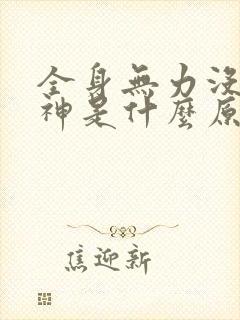 全身無力沒
神是什麼原
焦迎新